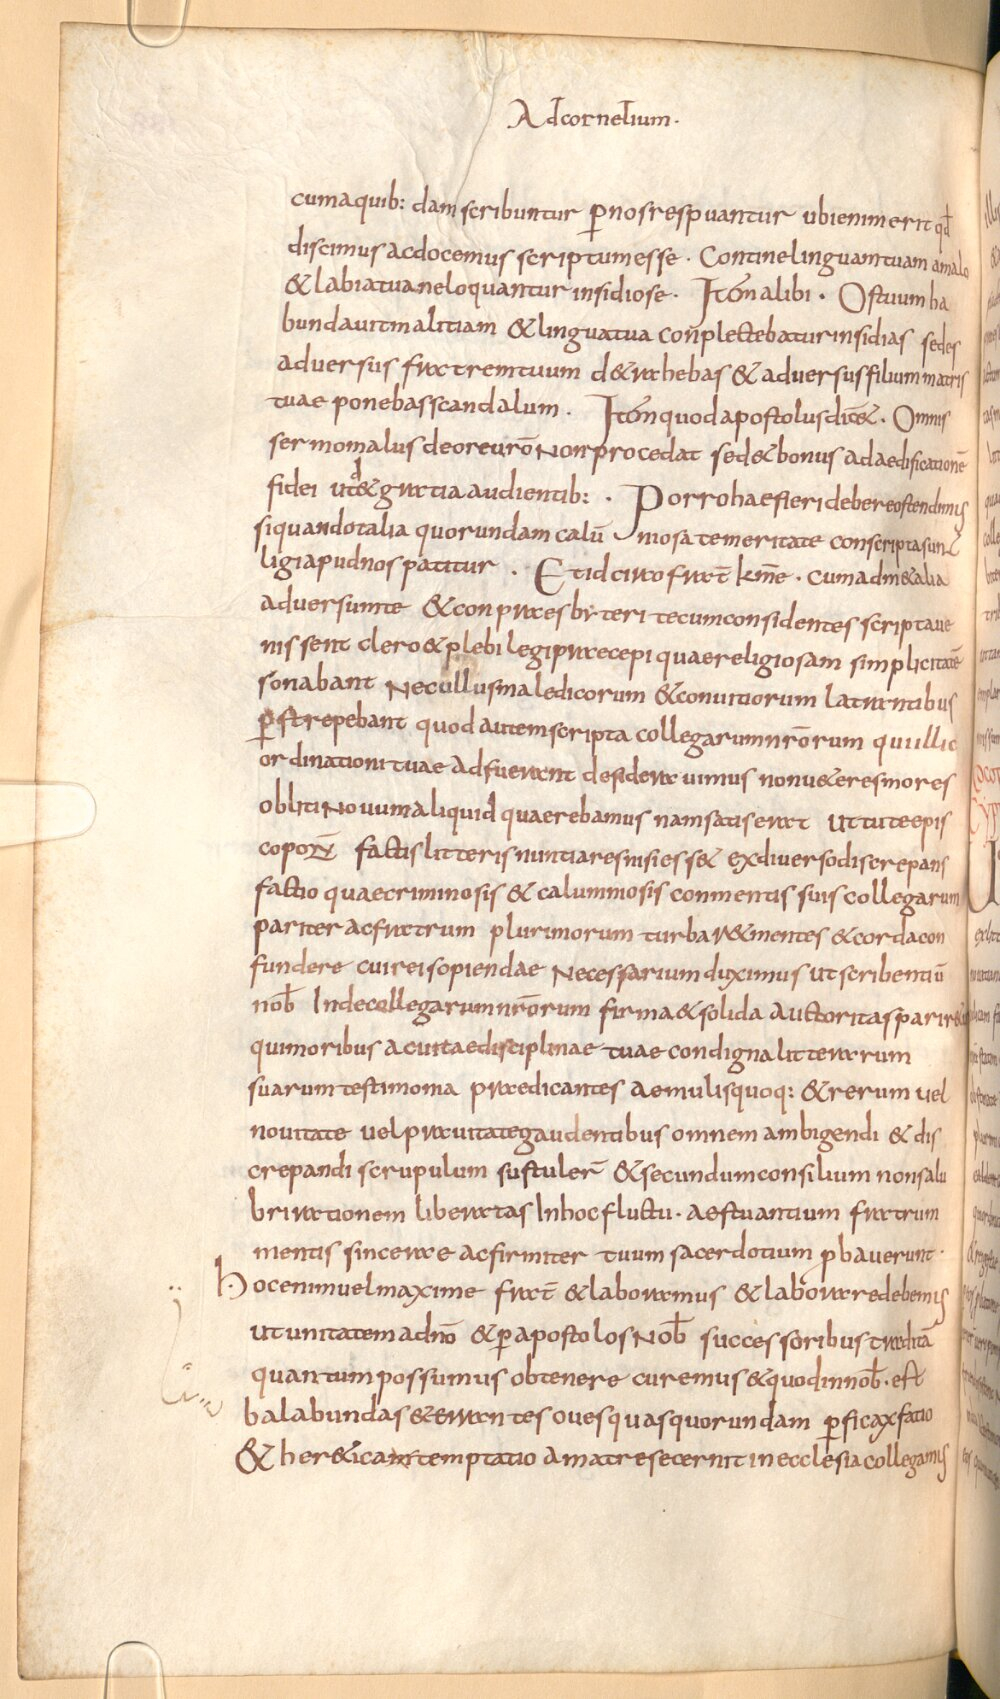 Ad cornelium.
cum a quib: dam scribuntur p̱ nos respuantur ubi enim erit qd̄
discimus ac docemus scriptum esse. Contine linguam tuam a malo
& labia tua ne loquantur insidiose. Itēm alibi. Os tuum ha
bundavit malitiam & lingua tua conplectebatur insidias sedes
adversus fratrem tuum d&rahebas & adversus filium matris
tuae ponebas scandalum. Itēm quod apostolus dic&. Omnis
sermo malus de ore urō Non procedat sed & bonus ad aedificationē
fidei ut d& gratia audientib:. Porro haec fieri debere ostendimus
si quando talia quorundam calū niosa temeritate conscripta sunt
ligi apud nos patitur. Et idcirco frat̄ km̄e. cum ad m& alia
adversum te & conpraesbyteri tecum considentes scriptave
nissent clero & plebi legi praecepi quae religiosam simplicitatē
sonabant Nec ullus maledicorum & convitiorum latrantibus
p̱strepebant quod autem scripta collegarum nrōrum qui illic
ordinationi tuae adfuerant desideravimus non v&eres mores
obliti Novum aliquid quaerebamus nam satis erat ut tu te epis
coporꝝ factis litteris nuntiares nisi ess& ex diverso discrepans
factio quae criminosis & calumniosis conmentis suis collegarum
pariter ac fratrum plurimorum turbar& mentes & corda con
fundere cui rei sopiendae Necessarium duximus ut scribentiū
nob̄ Inde collegarum nrōrum firma & solida auctoritas parir&
qui moribus ac vitae disciplinae tuae condigna litterarum
suarum testimonia praedicantes aemulisquoq: & rerum vel
novitate vel pravitate gaudentibus omnem ambigendi & dis
crepandi scrupulum sustuler̄ & secundum consilium non salu
bri rationem liberatas In hoc fluctu. aestuantium fratrum
mentis sincerae ac firmiter tuum sacerdotium pbaverunt.
hoc enim vel maxime frat̄ & laboramus & laborare debemus
ut unitatem a dnō & p̱ apostolos Nob̄ successoribus traditā
quantum possumus obtenere curemus & quod in nob̄. est
balabundas & errantes oves quas quorundam p̱ficax fatio
& her&ica temptatio a matre secernit in ecclesia collegamus